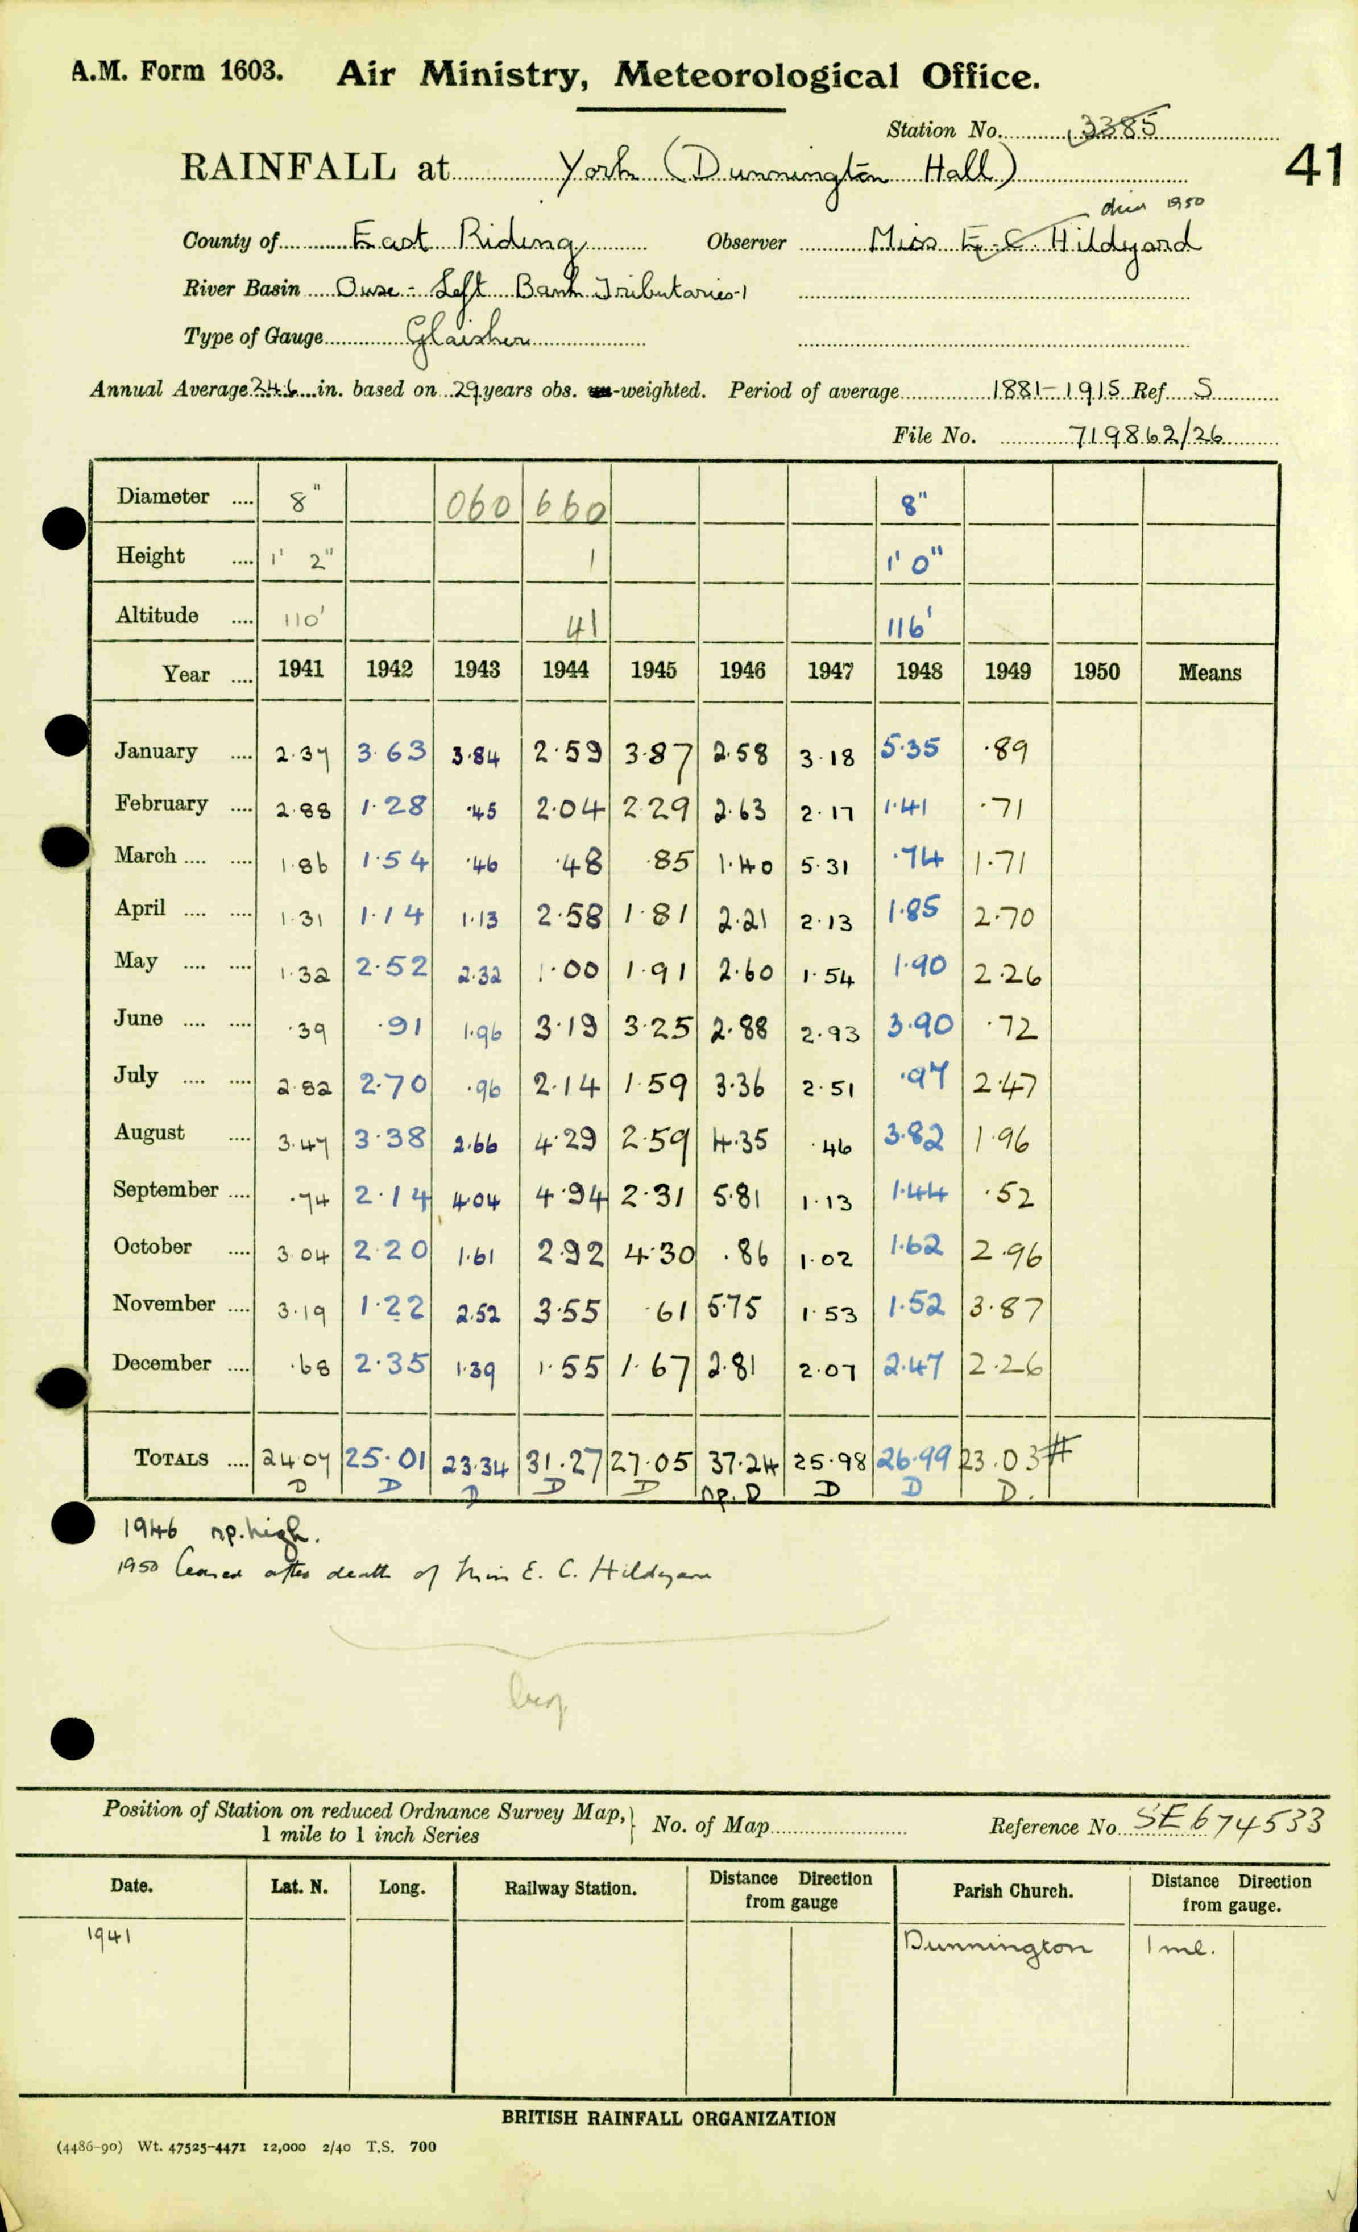 A.M. Form 1603. Air Ministry, Meteorological Office.
Station No. 3385
41
RAINFALL at York (Dunnington Hall)
died 1950
County of East Riding Observer Miss E. C. Hildyard
River Basin Ouse - Left Bank Tributaries-1
Type of Gauge Glaisher
Annual Average 24.6 in. based on 29 years obs. un-weighted. Period of average 1881-1915 Ref. S
File No. 719862/26
Diameter .... 8" 060 660 8"
Height .... 1' 2" 1 1' 0"
Altitude .... 110' 41 116'
Year .... 1941 1942 1943 1944 1945 1946 1947 1948 1949 1950 Means
January .... 2.37 3.63 3.84 2.59 3.87 2.58 3.18 5.35 .89
February .... 2.88 1.28 .45 2.04 2.29 2.63 2.17 1.41 .71
March .... .... 1.86 1.54 .46 .48 .85 1.40 5.31 .74 1.71
April .... .... 1.31 1.14 1.13 2.58 1.81 2.21 2.13 1.85 2.70
May .... .... 1.32 2.52 2.32 1.00 1.91 2.60 1.54 1.90 2.26
June .... .... .39 .91 1.96 3.19 3.25 2.88 2.93 3.90 .72
July .... .... 2.82 2.70 .96 2.14 1.59 3.36 2.51 .97 2.47
August .... 3.47 3.38 2.66 4.29 2.59 4.35 .46 3.82 1.96
September .... .74 2.14 4.04 4.94 2.31 5.81 1.13 1.44 .52
October .... 3.04 2.20 1.61 2.92 4.30 .86 1.02 1.62 2.96
November .... 3.19 1.22 2.52 3.55 .61 5.75 1.53 1.52 3.87
December .... .68 2.35 1.39 1.55 1.67 2.81 2.07 2.47 2.26
TOTALS .... 24.07 25.01 23.34 31.27 27.05 37.24 25.98 26.99 23.03 #
D D D D D np. D D D D.
1946 np. high.
1950 Ceased after death of Miss E. C. Hildyard
Position of Station on reduced Ordnance Survey Map, No. of Map Reference No. SE 674533
1 mile to 1 inch Series
Date. Lat. N. Long. Railway Station. Distance Direction from gauge Parish Church. Distance Direction from gauge.
1941 Dunnington 1 ml.
BRITISH RAINFALL ORGANIZATION
(4486-90) Wt. 47525-4471 12,000 2/40 T.S. 700